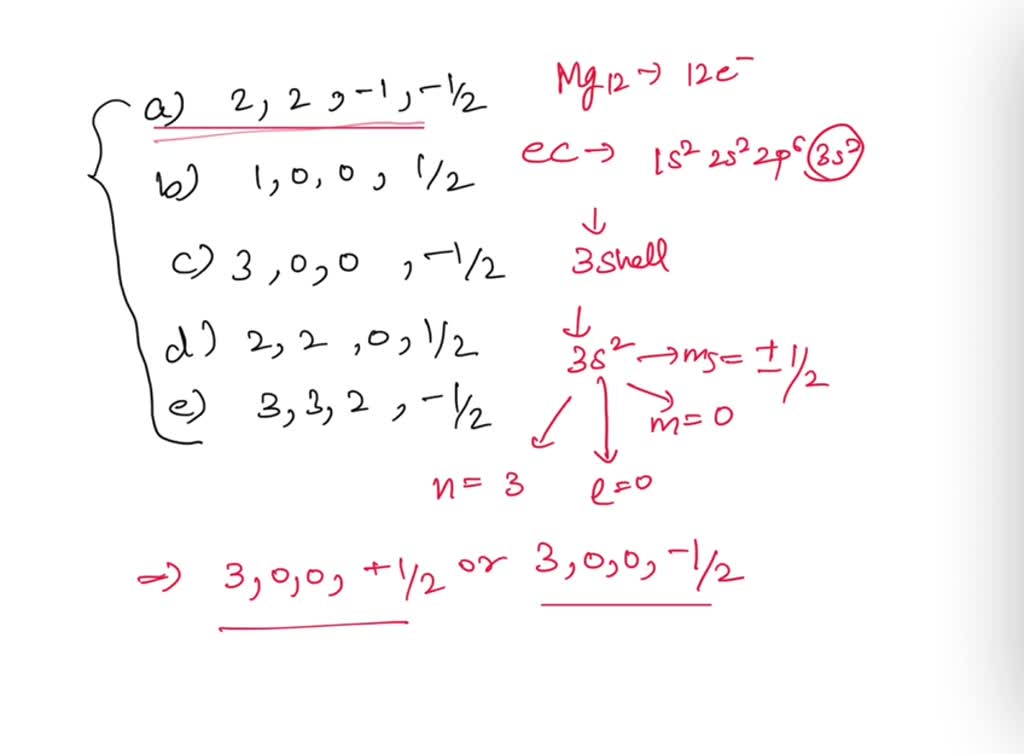 a) 2, 2, -1, -1/2
b) 1, 0, 0, 1/2
c) 3, 0, 0, -1/2
d) 2, 2, 0, 1/2
e) 3, 3, 2, -1/2
Mg12 → 12e⁻
ec → 1s² 2s² 2p⁶ 3s²
↓
3 shell
↓
3s² → ms = ± 1/2
m = 0
n = 3 l = 0
⇒ 3, 0, 0, +1/2 or 3, 0, 0, -1/2